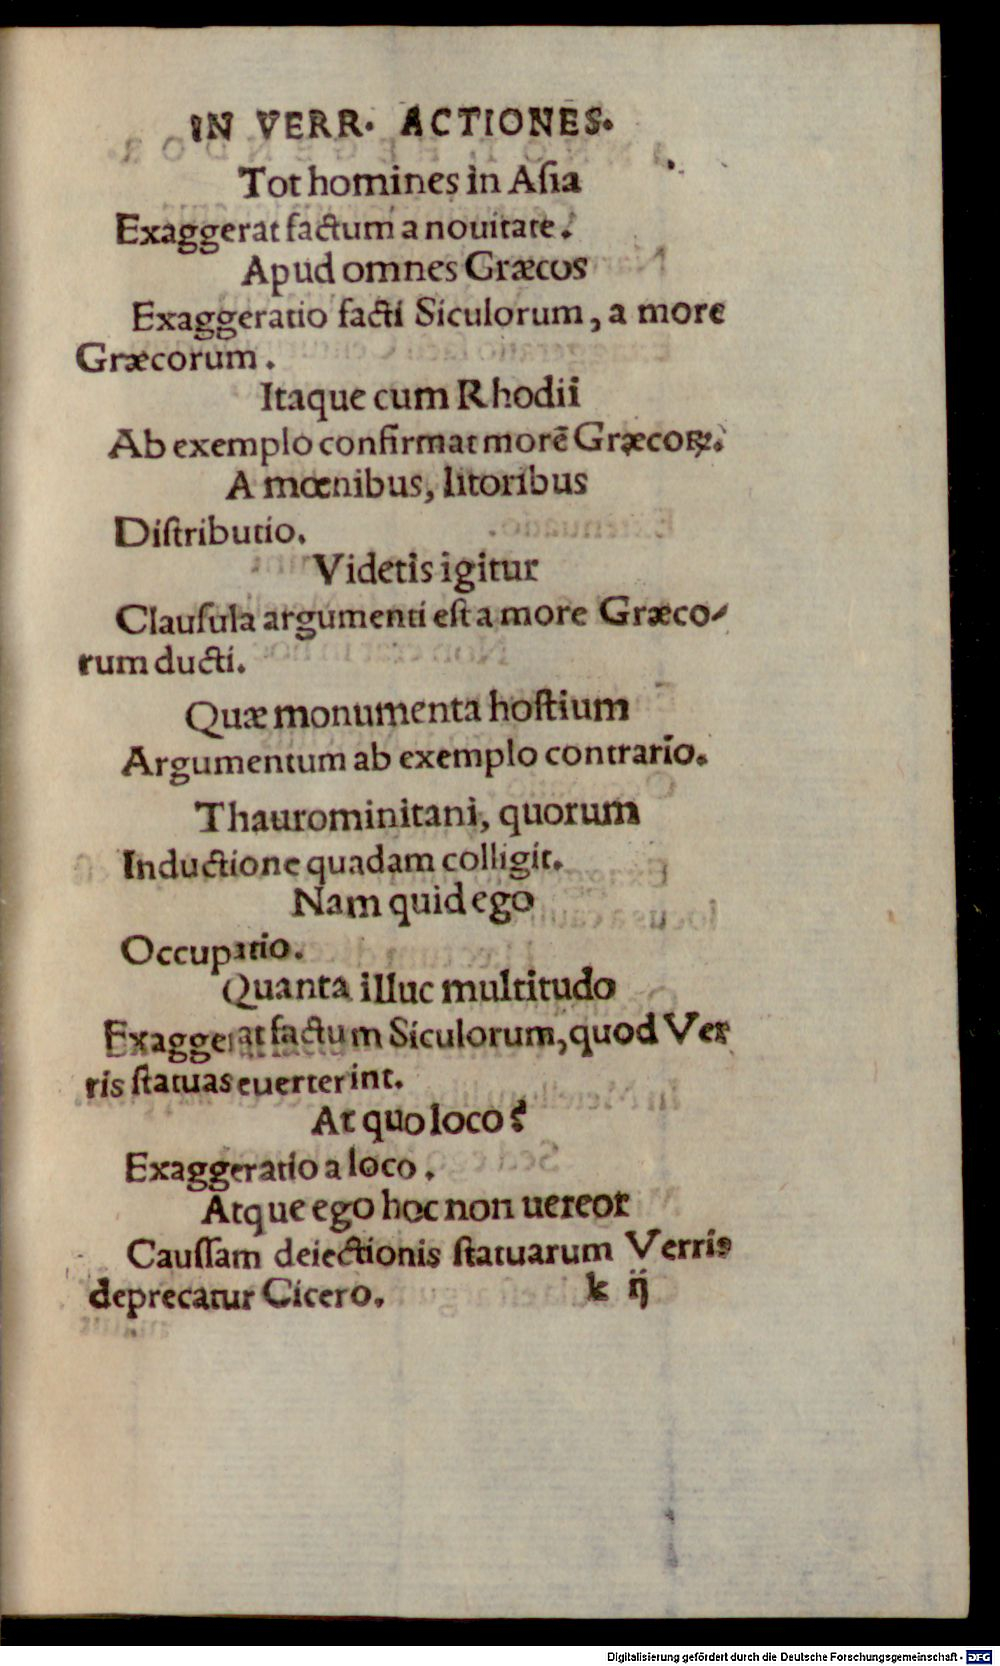 IN VERR. ACTIONES.
Tot homines in Aſia
Exaggerat factum a nouitate.
Apud omnes Græcos
Exaggeratio facti Siculorum, a more
Græcorum.
Itaque cum Rhodii
Ab exemplo confirmat morē Græcoꝝ.
A mœnibus, litoribus
Diſtributio.
Videtis igitur
Clauſula argumenti eſt a more Græco-
rum ducti.
Quæ monumenta hoſtium
Argumentum ab exemplo contrario.
Thaurominitani, quorum
Inductione quadam colligit.
Nam quid ego
Occupatio.
Quanta illuc multitudo
Exaggerat factum Siculorum, quod Ver
ris ſtatuas euerterint.
At quo loco?
Exaggeratio a loco.
Atque ego hoc non uereor
Cauſſam deiectionis ſtatuarum Verris
deprecatur Cicero. k ij
Digitalisierung gefördert durch die Deutsche Forschungsgemeinschaft - DFG